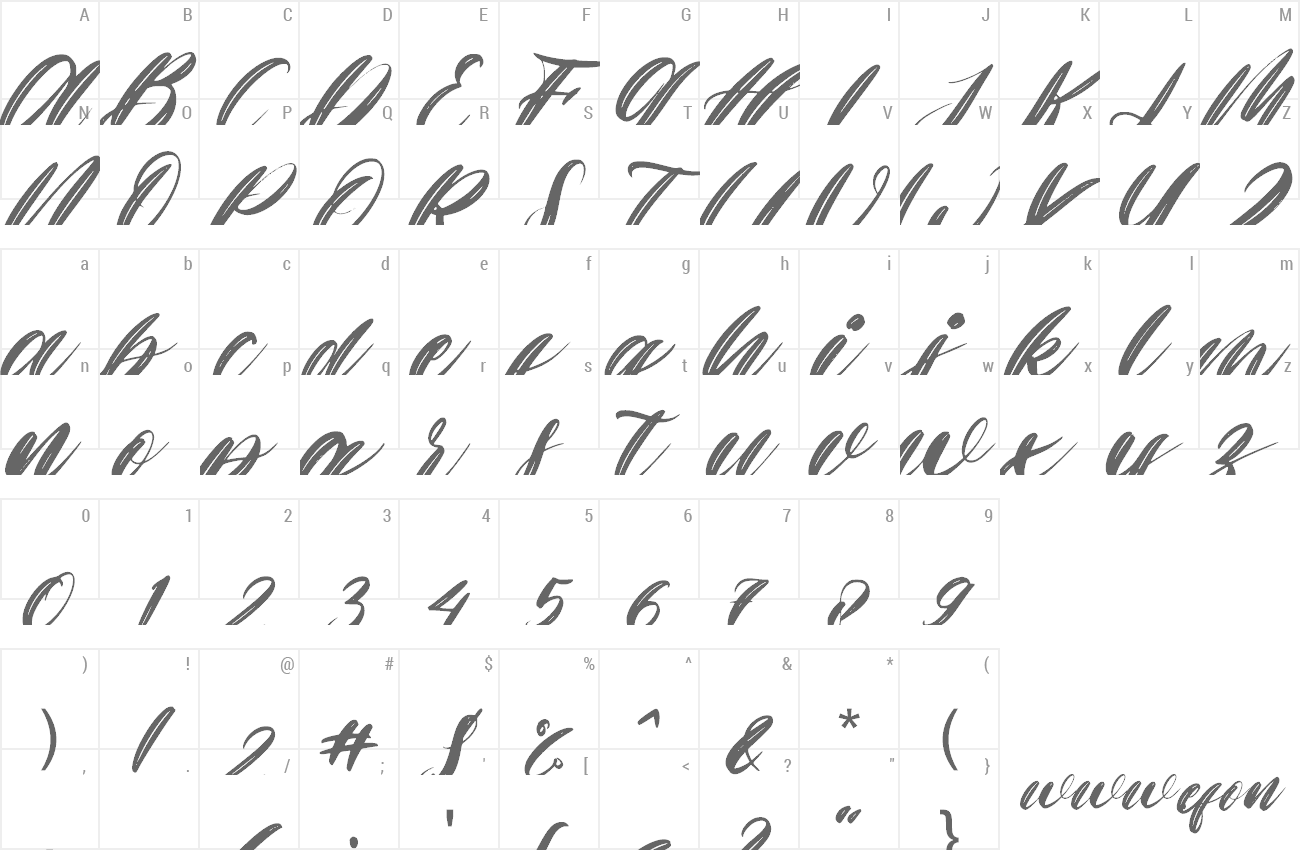 A B C D E F G H I J K L M
A B C D E F G H I J K L M
N O P Q R S T U V W X Y Z
N O P Q R S T U V W X Y Z
a b c d e f g h i j k l m
a b c d e f g h i j k l m
n o p q r s t u v w x y z
n o p q r s t u v w x y z
0 1 2 3 4 5 6 7 8 9
0 1 2 3 4 5 6 7 8 9
) ! @ # $ % ^ & * (
) ! 2 # $ % ^ & * (
, . / ; ' [ < ? " }
' " }